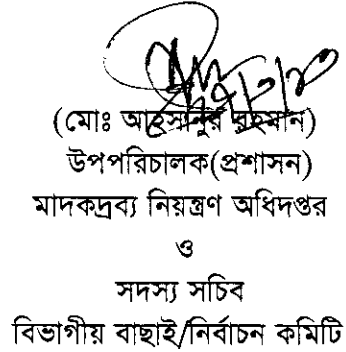 (মোঃ আহসানুর রহমান)
উপপরিচালক(প্রশাসন)
মাদকদ্রব্য নিয়ন্ত্রণ অধিদপ্তর
ও
সদস্য সচিব
বিভাগীয় বাছাই/নির্বাচন কমিটি